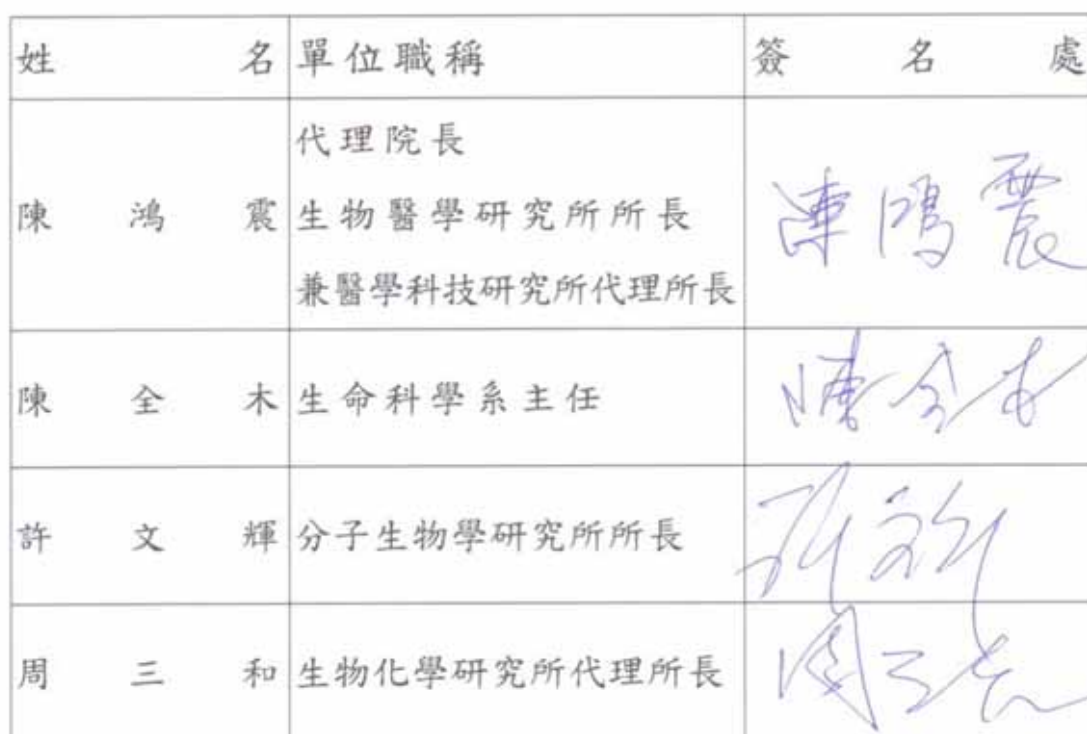 姓 名 單位職稱 簽 名 處
代理院長
陳 鴻 震 生物醫學研究所所長 陳鴻震
兼醫學科技研究所代理所長
陳 全 木 生命科學系主任 陳全木
許 文 輝 分子生物學研究所所長 許文輝
周 三 和 生物化學研究所代理所長 周三和